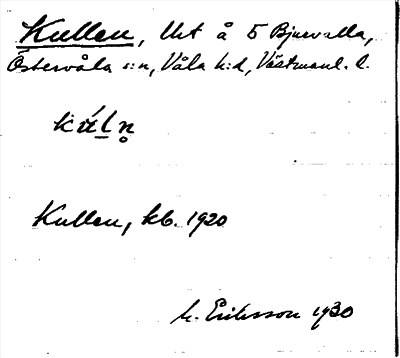 Kullen, Utt å 5 Bjurvalla,
Östervåla s:n, Våla h:d, Västmanl. l.
kúl̠n̥
Kullen, kb. 1920
M. Eriksson 1930